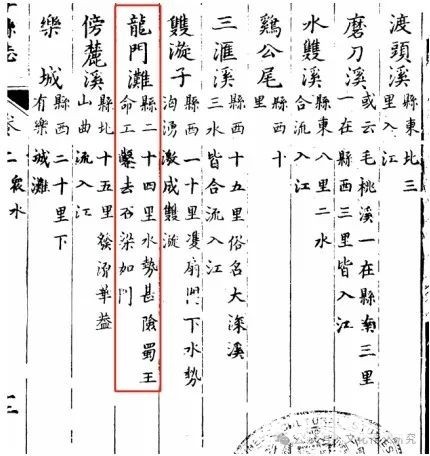 渡頭溪 縣東北三
里入江
磨刀溪 或云毛桃溪一在縣南三里
一在縣西三里皆入江
水雙溪 縣東八里二水
合流入江
鷄公尾 縣西十
里
三滙溪 縣西十五里俗名大深溪
三水皆合流入江
雙漩子 縣西一十里扇門下水勢
洶湧激成雙漩
龍門灘 縣二十四里水勢甚險蜀王
命工鑿去石梁如門
傍麓溪 縣北十五里發源華益
山曲流入江
樂城 縣西二十里下
有樂城灘
縣志 卷二 衆水